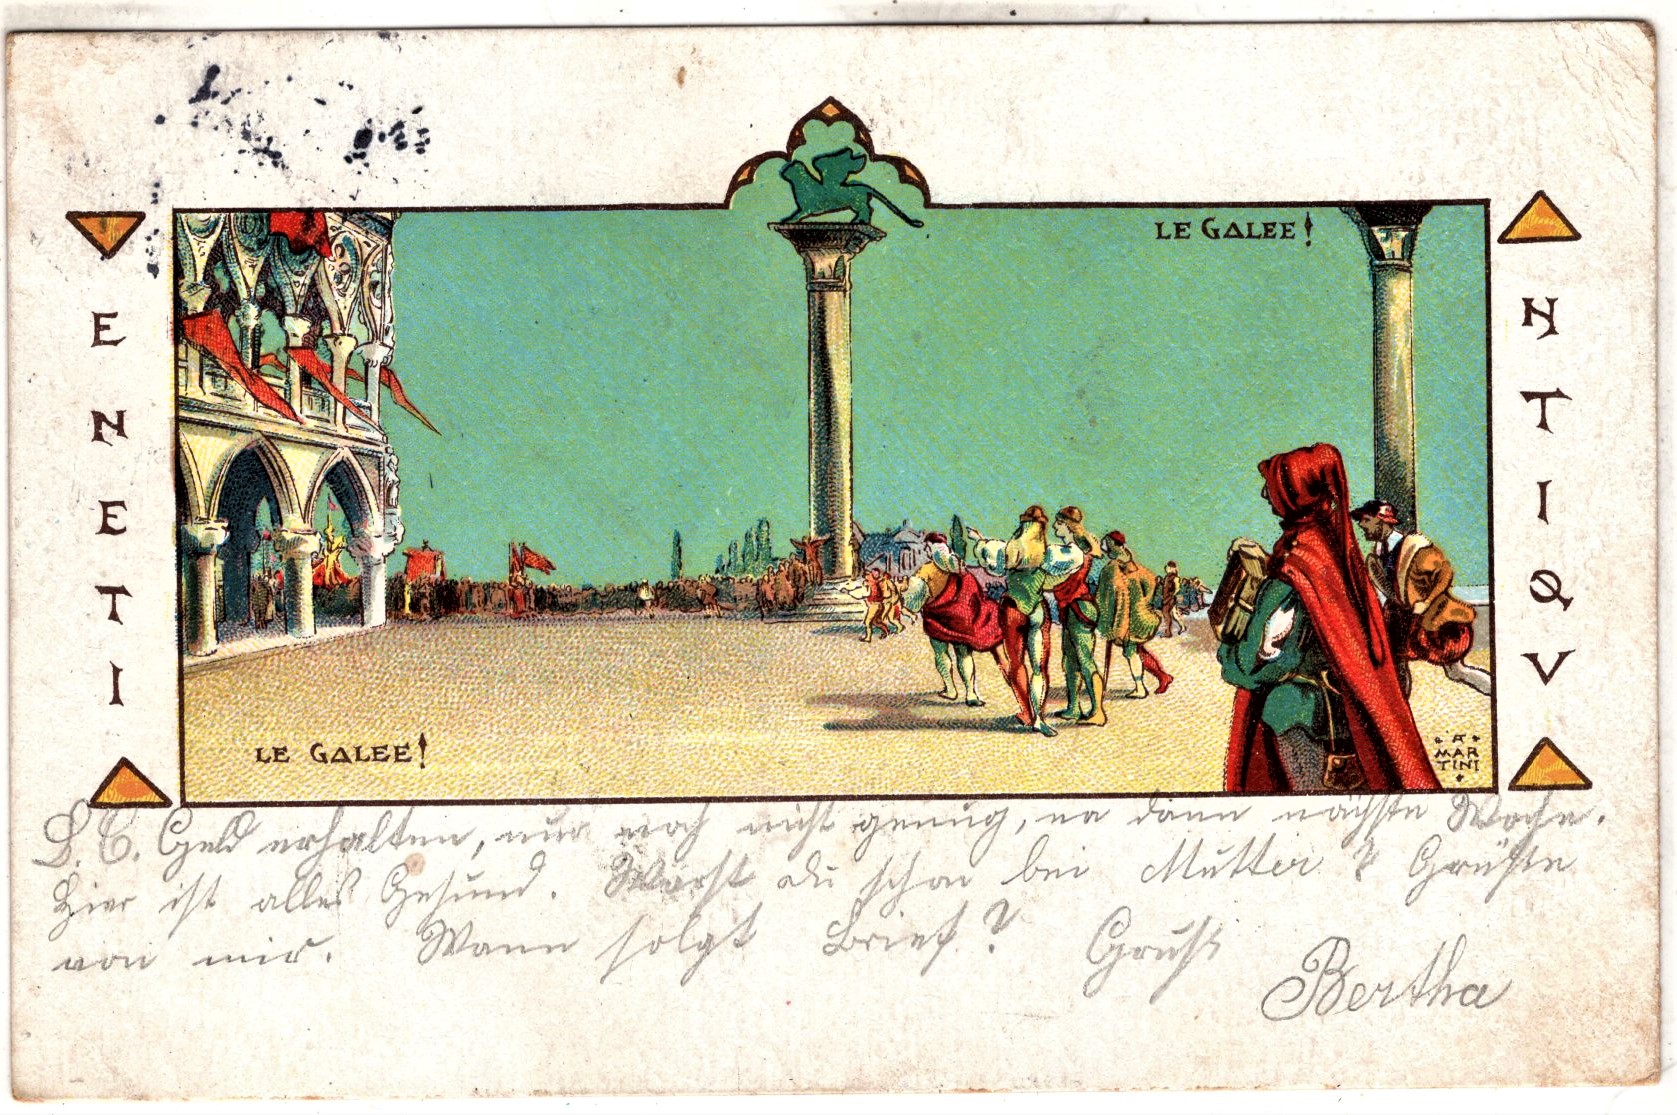 LE GALEE!
ENETI
NTIQV
LE GALEE!
A
MAR
TINI
L. E. Geld erhalten, nur noch nicht genug, na dann nächste Woche.
Hier ist alles Gesund. Warst du schon bei Mutter? Grüße
von mir. Wann folgt Brief? Gruß
Bertha